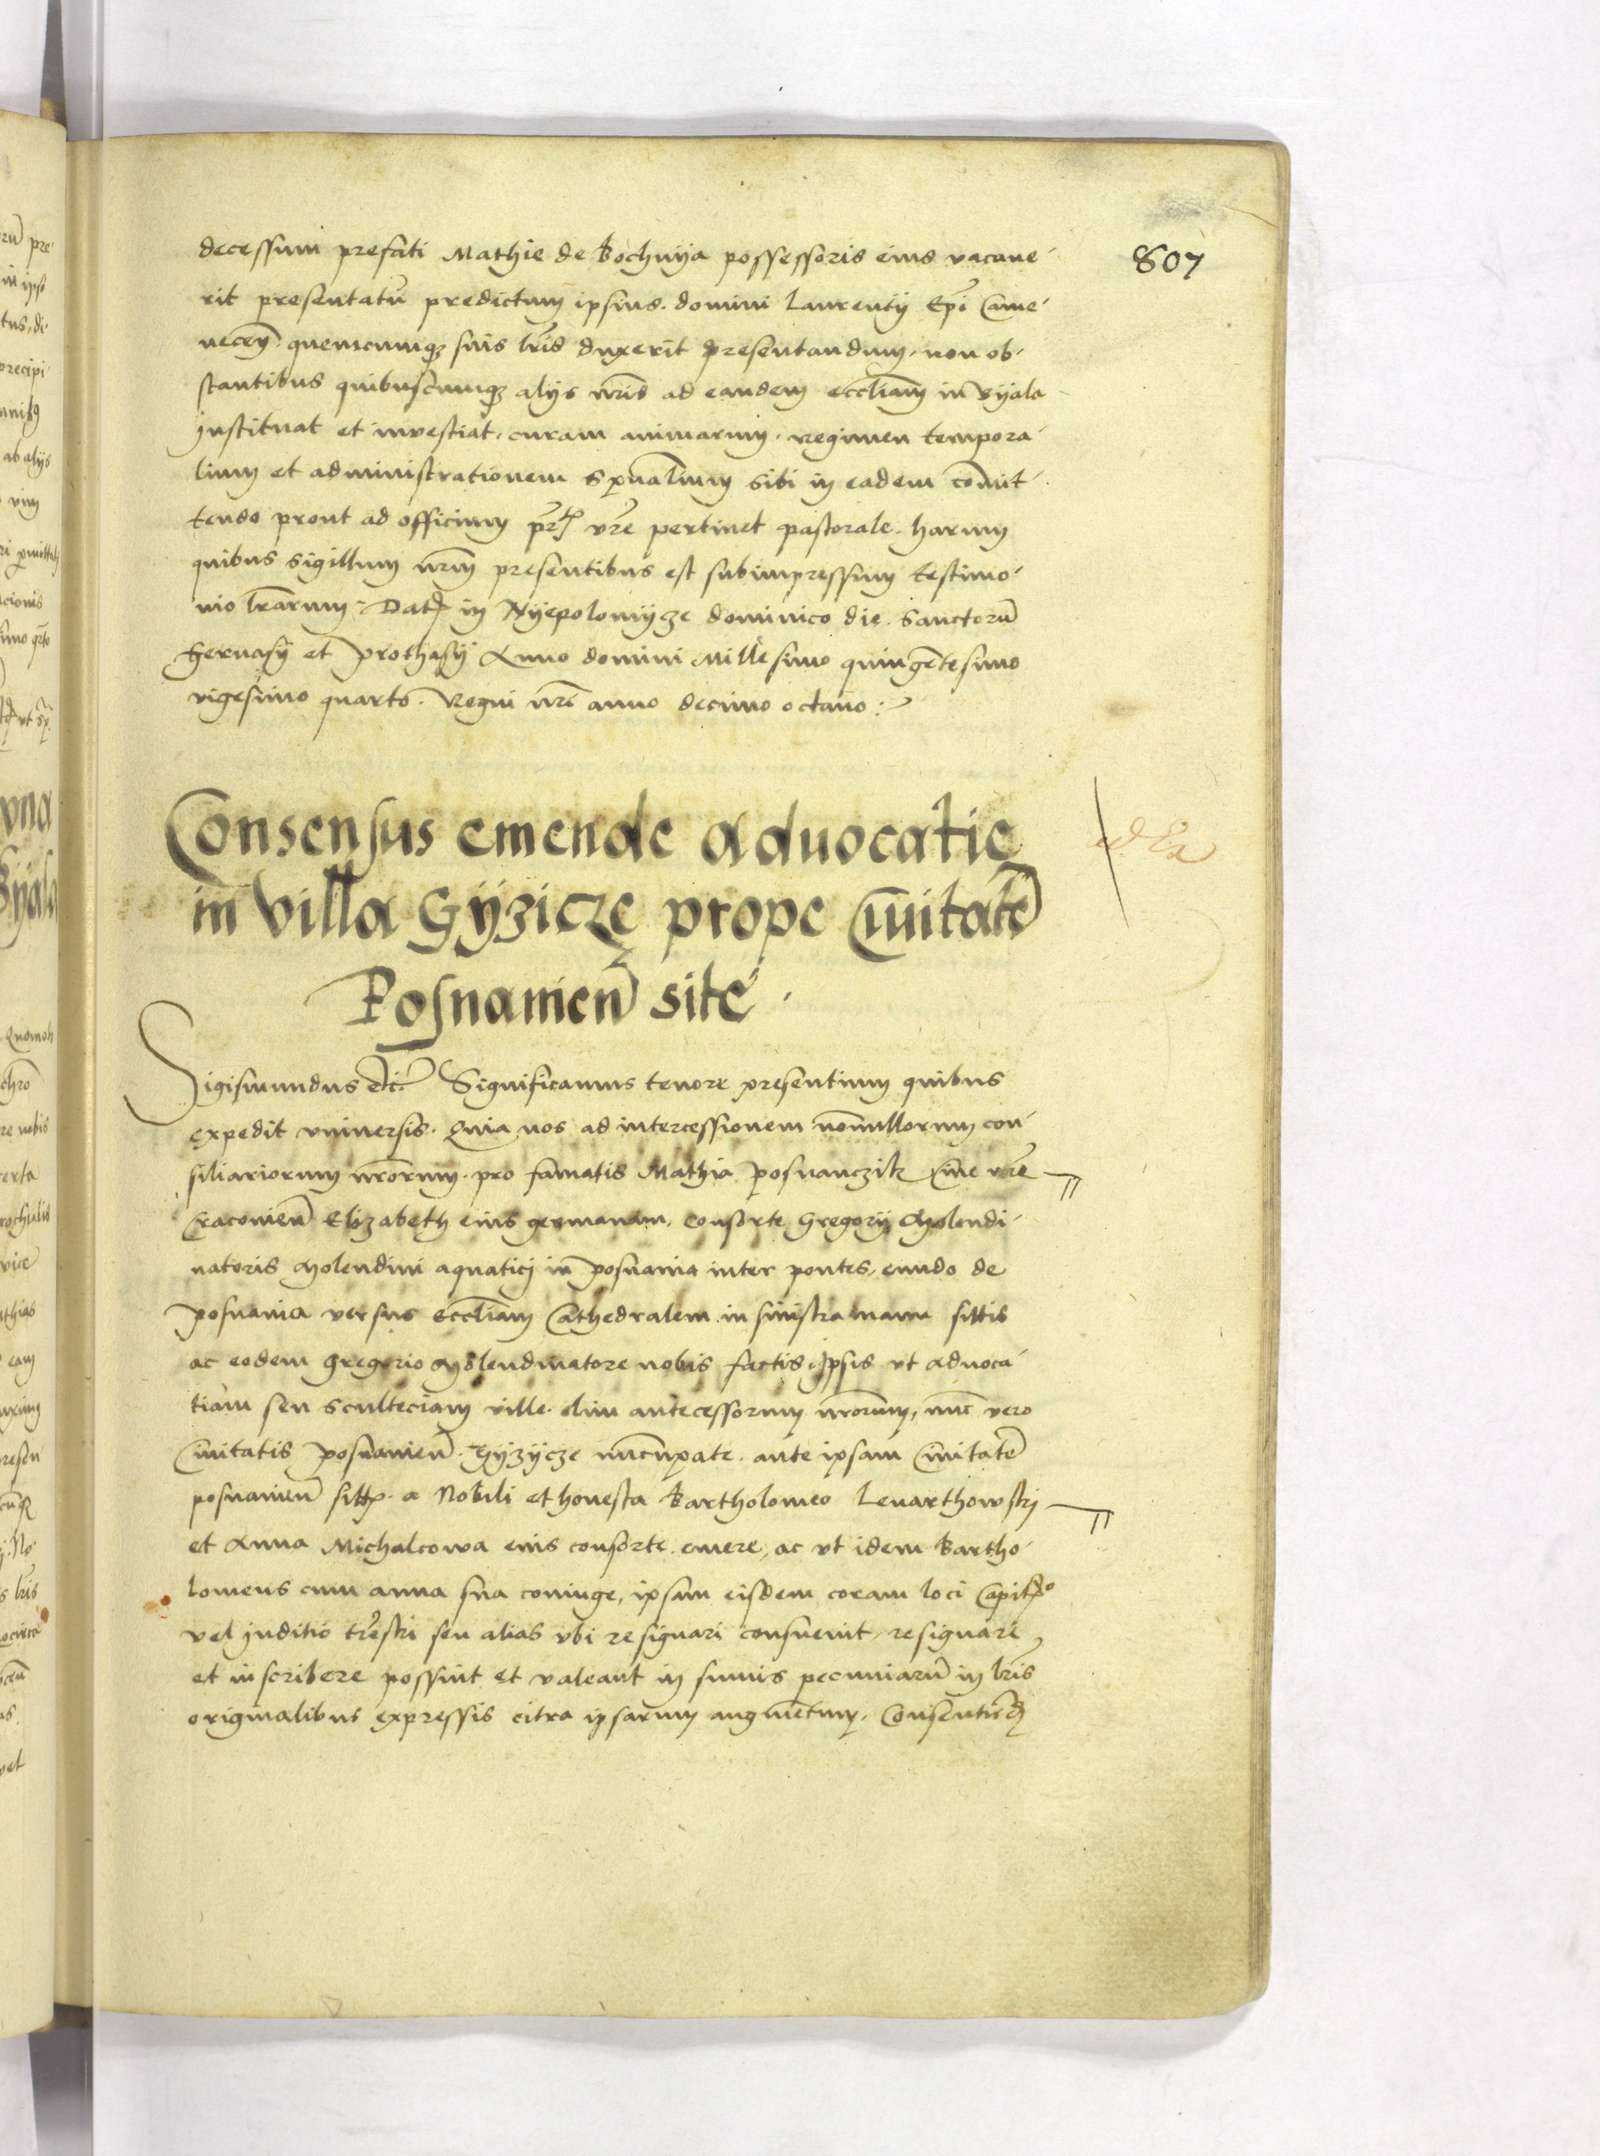 807
decessum prefati Mathie de Bochnija possessoris eius vacaue-
rit presentatū predictum ipsius domini Laurentij Epī Came-
necen̄ quemcumqꝫ suis lrīs duxerit presentandum, non ob-
stantibus quibuscumqꝫ alijs nrīs ad eandem eccliam̄ in Byala
Instituat et inuestiat, curam animarum, regimen tempora-
lium et administrationem spūalium sibi in eadem com̄it-
tendo prout ad officium vrē pertinet pastorale. harum
quibus sigillum nrm̄ presentibus est subimpressum testimo-
nio lrārum. Dat in Nyepolomycze dominico die Sanctorū
Geruasij et Prothasij Anno domini Millesimo quingētesimo
vigesimo quarto. Regni nrī anno decimo octauo:
Consensus emende aduocatie
in villa Gÿzicze prope Ciuitatē
Posnanien̄ site.
ad Ea
Sigismundus etc̄. Significamus tenore presentium quibus
expedit vniuersis. Quia nos ad intercessionem nonnullorum con-
siliariorum nrōrum. pro famatis Mathia Posnanczik Ciue nrē
Cracouien̄ Elizabeth eius germanam, consorte Gregorij Molendi-
natoris Molendini aquatici in Posnania inter pontes, eundo de
Posnania versus eccliam̄ Cathedralem in sinistra manu sittis
ac eodem Gregorio Molendinatore nobis factis, Ipsis vt aduoca-
tiam seu sculteciam ville olim antecessorum nrōrum, nūc vero
Ciuitatis Posnanien̄. Gÿzÿcze nūcupate. ante ipsam Ciuitatē
posnanien̄ sitt. a Nobili et honesta Bartholomeo Leuarthowskj
et Anna Michalcowa eius consorte emere, ac vt idem Bartho-
lomeus cum anna sua coniuge, ipsam eisdem coram loci Capitō
vel Iuditio trēstri seu alias vbi resignari consueuit, resignare
et inscribere possint et valeant in sum̄is pecuniarū in lrīs
originalibus expressis citra ipsarum augmētum. Consentien̄